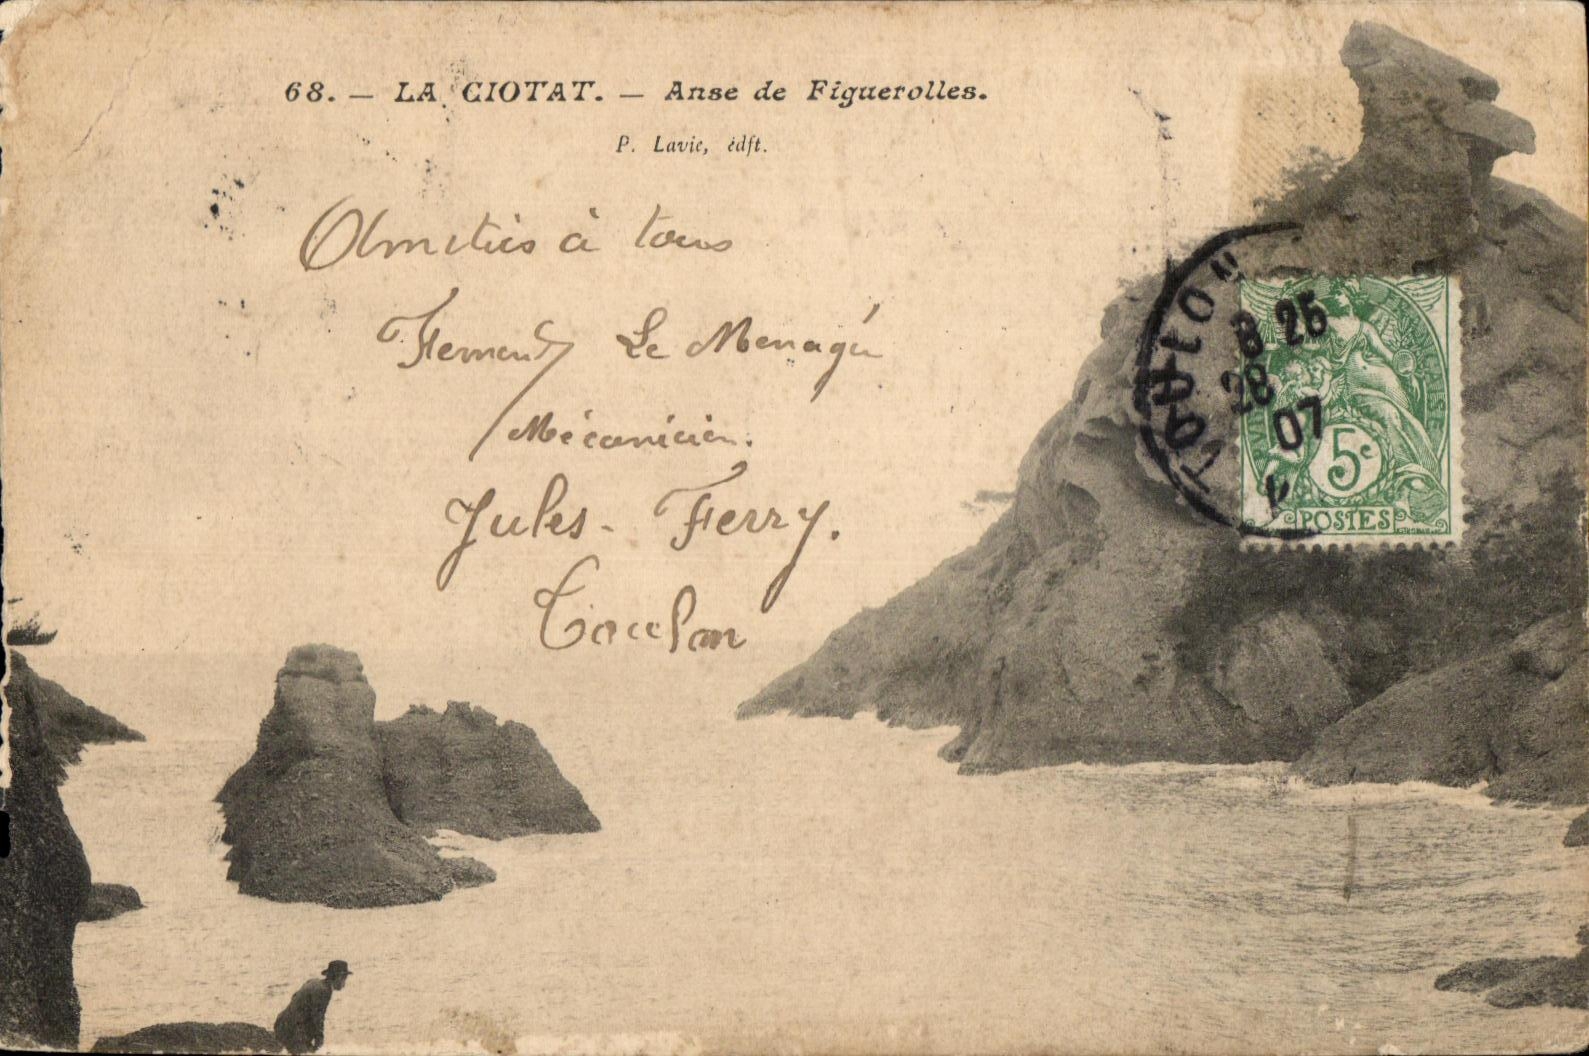 68. — LA CIOTAT. — Anse de Figuerolles.
P. Lavie, édit.
Amitiés à tous
Fernand Le Menagé
Mécanicien.
Jules-Ferry.
Toulon
TOULON
8 25
28
07
RÉPUBLIQUE FRANÇAISE
5c
POSTES